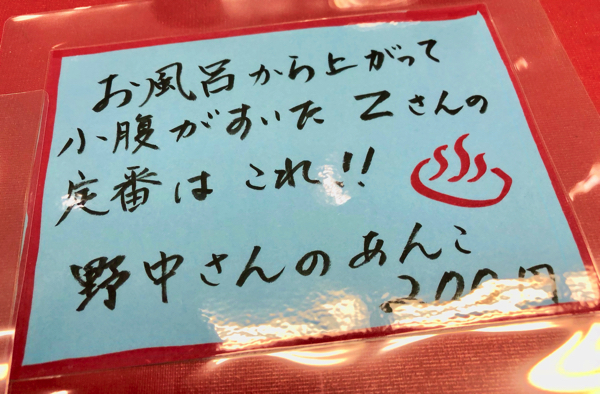 お風呂から上がって
小腹がすいた Zさんの
定番は これ!!
野中さんのあんこ
200円